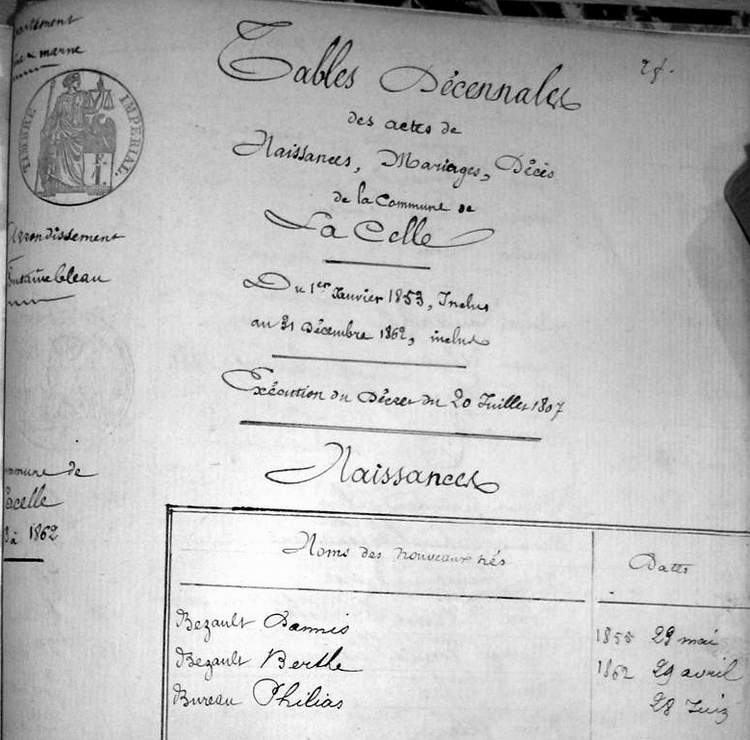 Tables Décennales
des actes de
Naissances, Mariages, Décès
de la Commune de
La Celle
Du 1er Janvier 1853, Inclus
au 31 Décembre 1862, inclus
Exécution du Décret du 20 Juillet 1807
Naissances
Noms des nouveaux nés Dates
Bezault Dannis 1855 29 mai
Bezault Berthe 1862 29 avril
Bureau Philias 28 Juin
marne
TIMBRE IMPÉRIAL
1 F
Arrondissement
Fontainebleau
Commune de
Lacelle
à 1862